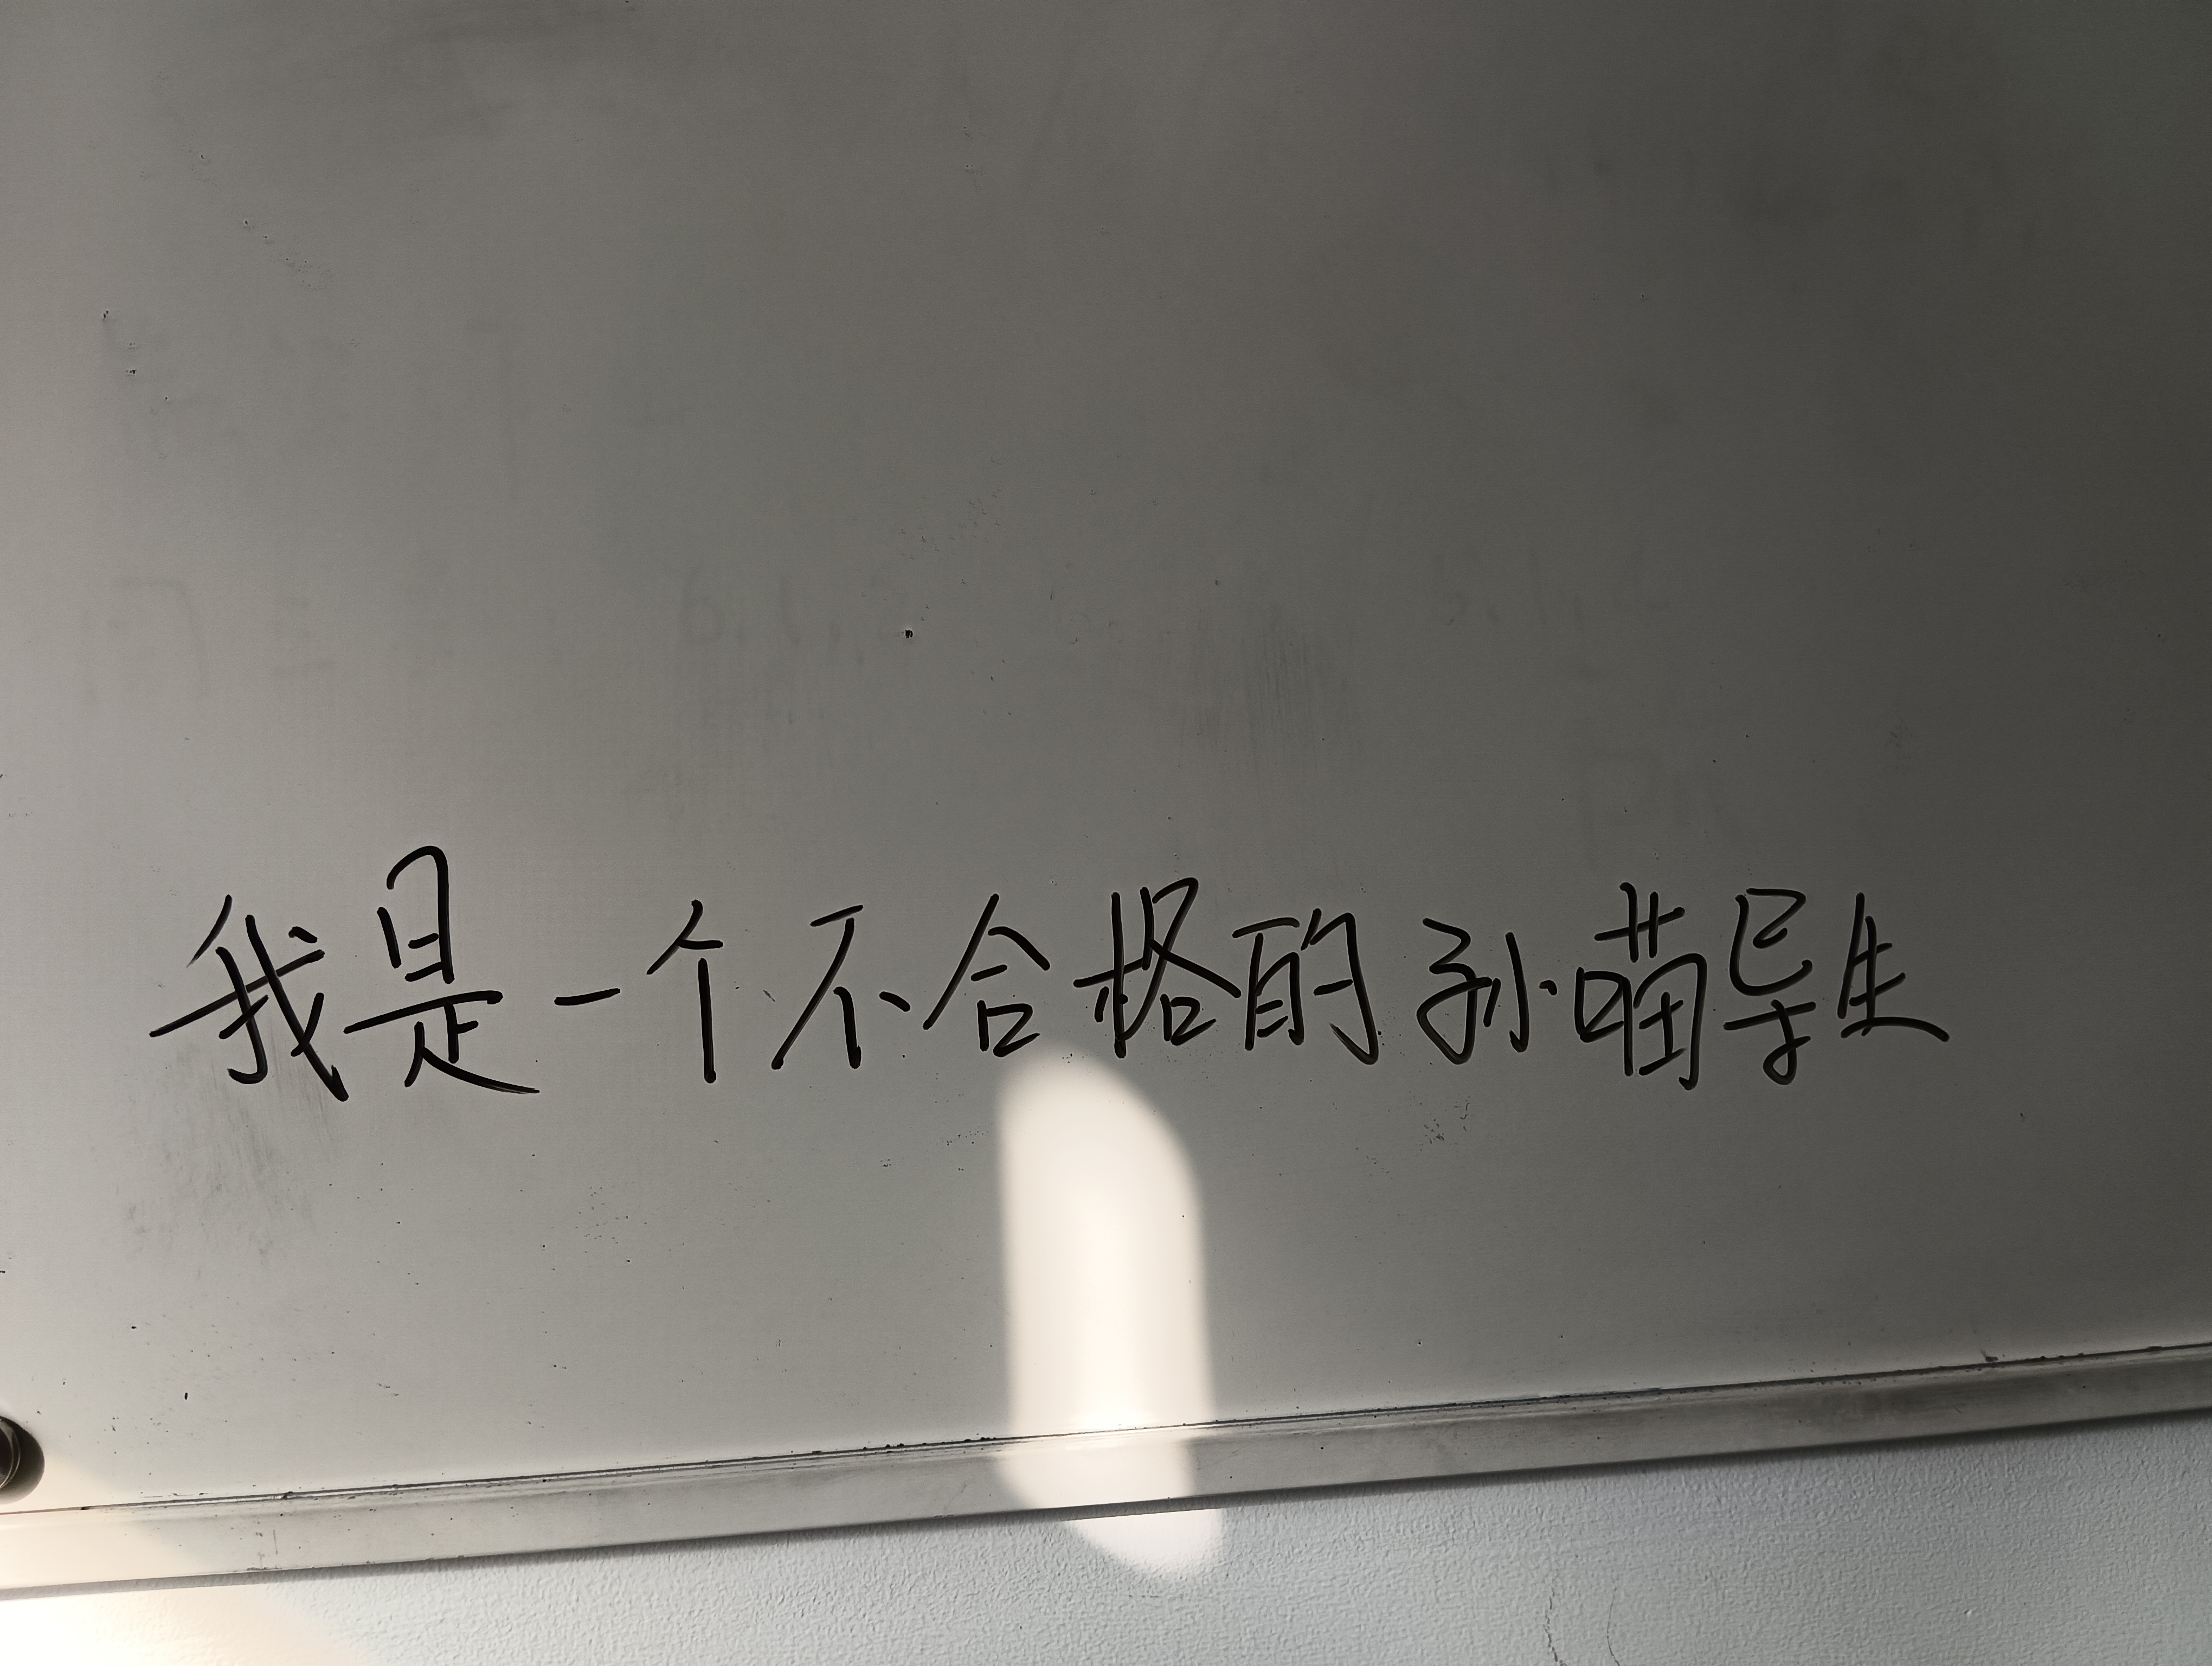 我是一个不合格的孙喵导生